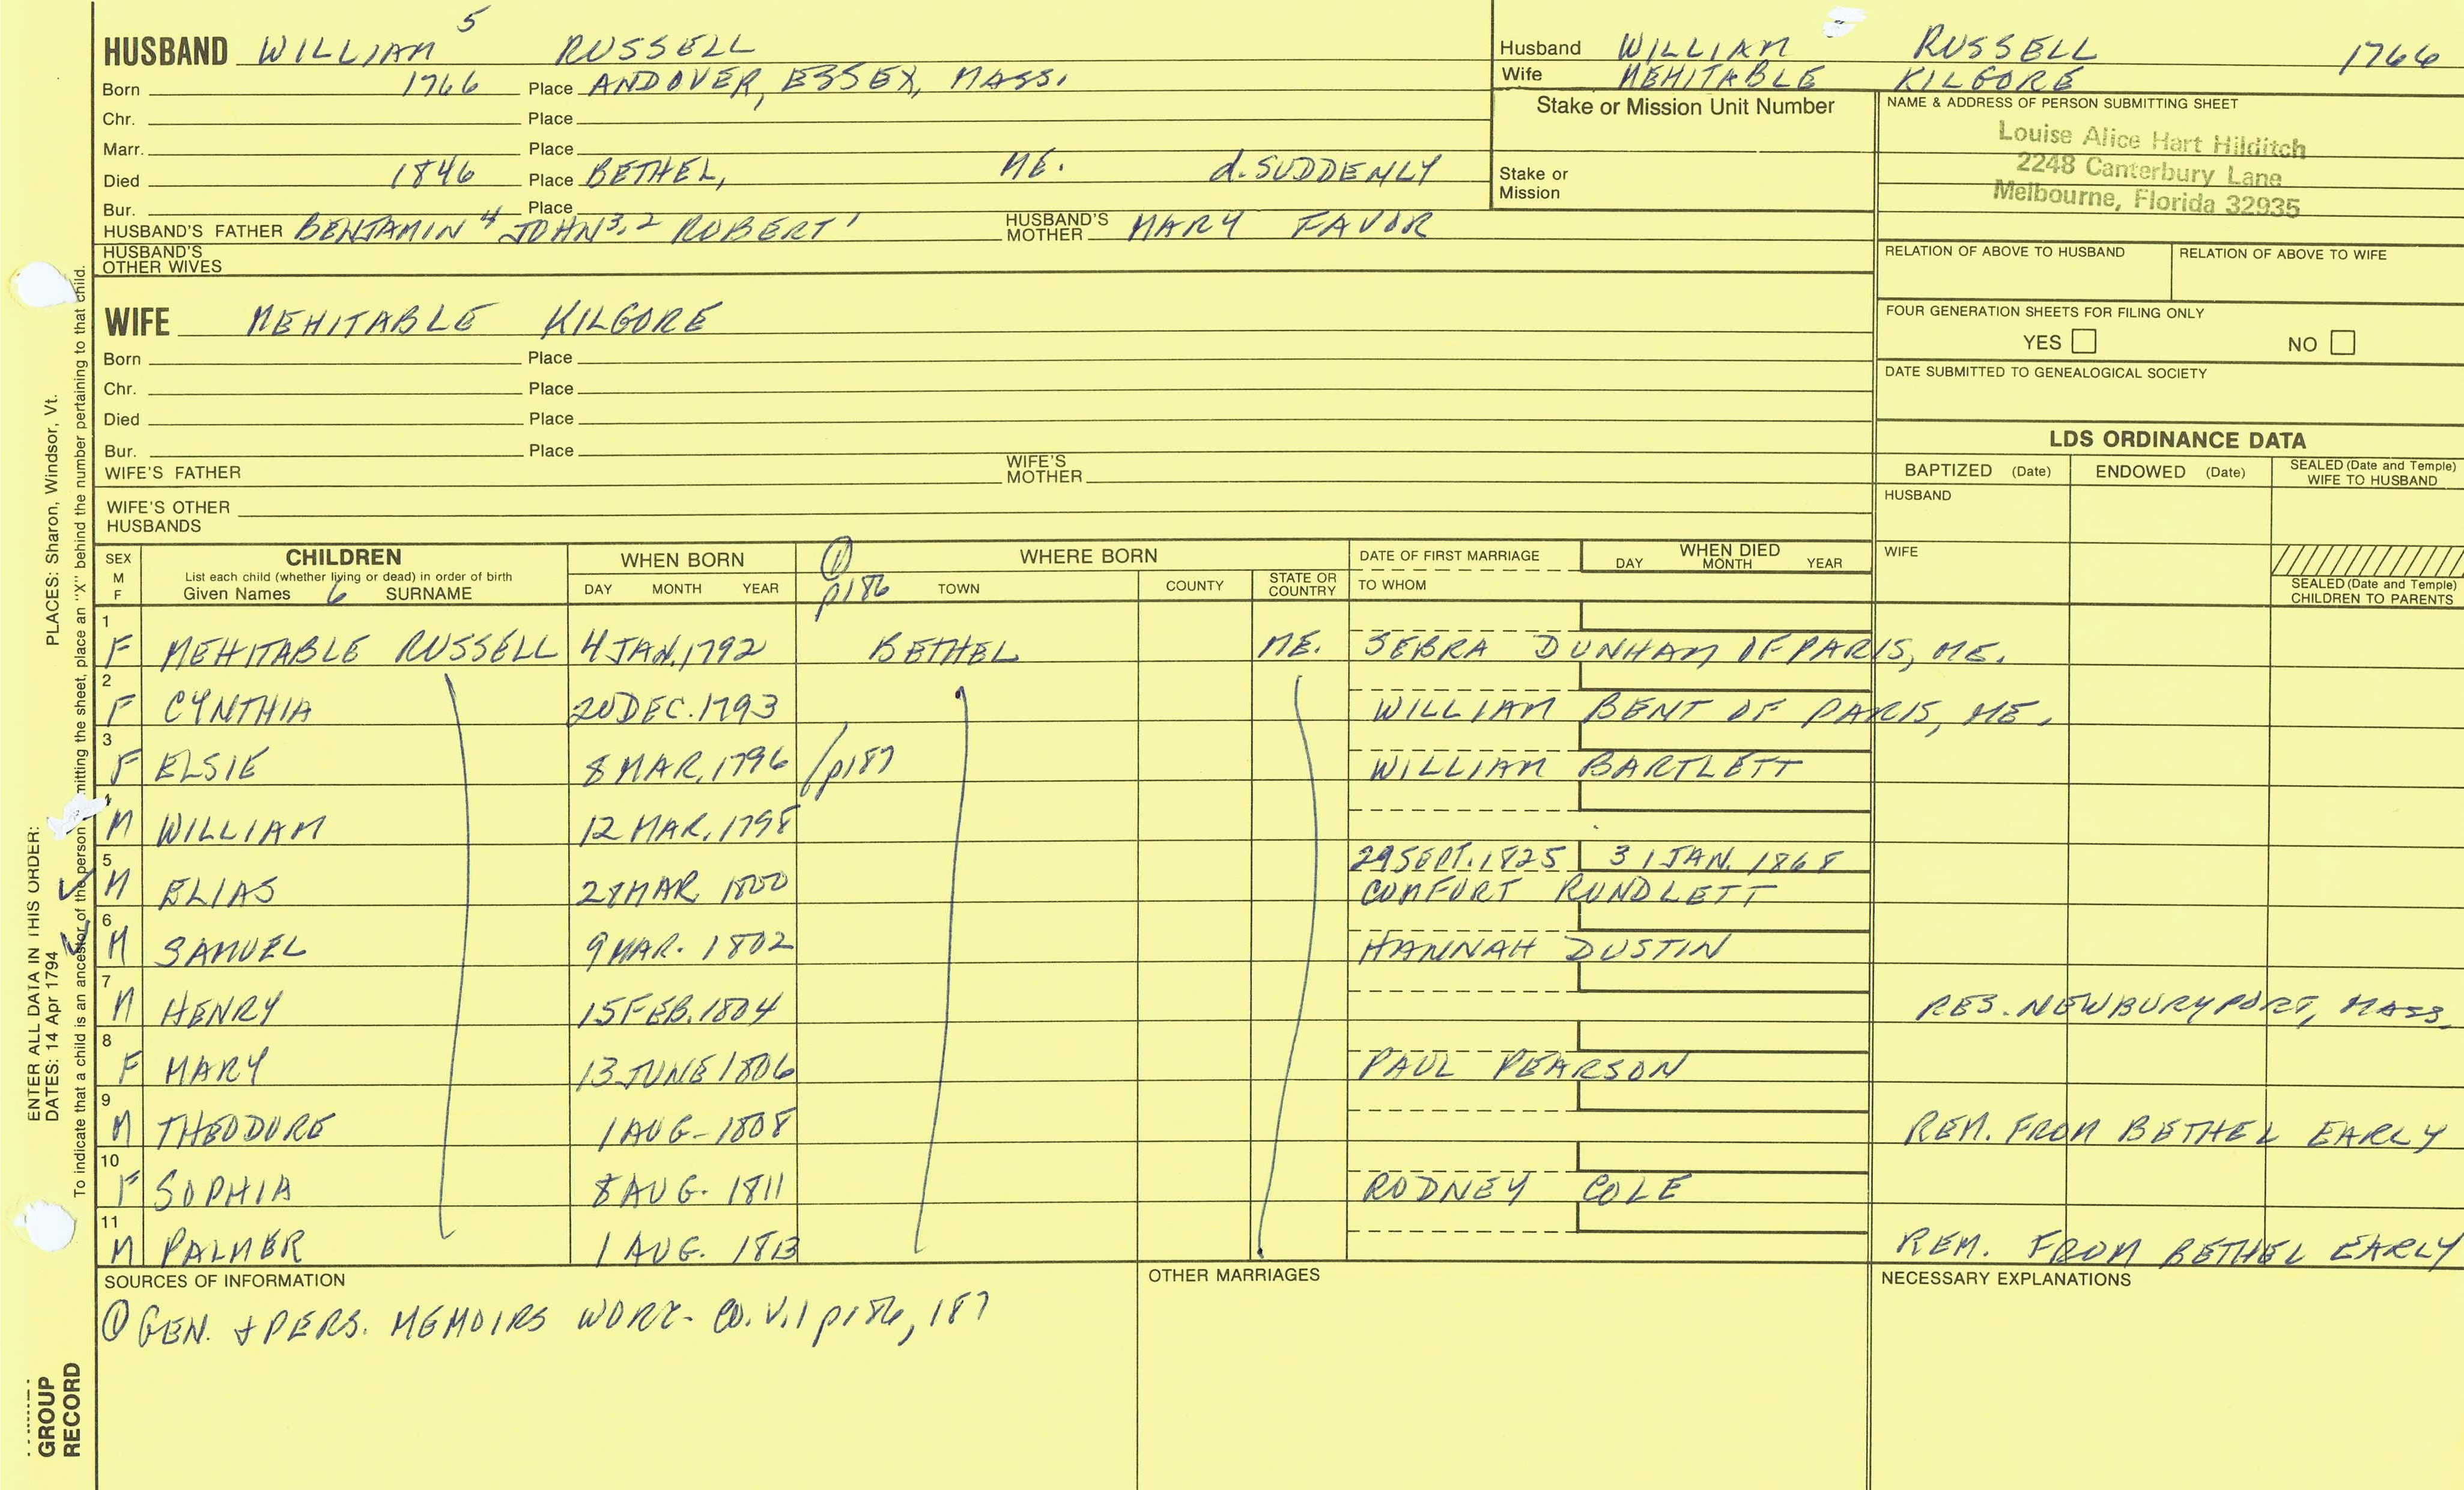 5
HUSBAND WILLIAM RUSSELL
Born 1766 Place ANDOVER, ESSEX, MASS.
Chr. Place
Marr. Place
Died 1846 Place BETHEL, ME. d. SUDDENLY
Bur. Place
HUSBAND'S FATHER BENJAMIN 4 JOHN 3,2 ROBERT 1 HUSBAND'S MOTHER MARY FAVOR
HUSBAND'S OTHER WIVES
Husband WILLIAM RUSSELL 1766
Wife MEHITABLE KILGORE
Stake or Mission Unit Number
Stake or Mission
NAME & ADDRESS OF PERSON SUBMITTING SHEET
Louise Alice Hart Hilditch
2248 Canterbury Lane
Melbourne, Florida 32935
RELATION OF ABOVE TO HUSBAND RELATION OF ABOVE TO WIFE
FOUR GENERATION SHEETS FOR FILING ONLY
YES NO
DATE SUBMITTED TO GENEALOGICAL SOCIETY
WIFE MEHITABLE KILGORE
Born Place
Chr. Place
Died Place
Bur. Place
WIFE'S FATHER WIFE'S MOTHER
WIFE'S OTHER HUSBANDS
LDS ORDINANCE DATA
BAPTIZED (Date) ENDOWED (Date) SEALED (Date and Temple) WIFE TO HUSBAND
HUSBAND
WIFE
SEALED (Date and Temple) CHILDREN TO PARENTS
SEX M F CHILDREN WHEN BORN 1 WHERE BORN DATE OF FIRST MARRIAGE WHEN DIED
List each child (whether living or dead) in order of birth
Given Names 6 SURNAME DAY MONTH YEAR p186 TOWN COUNTY STATE OR COUNTRY TO WHOM DAY MONTH YEAR
1 F MEHITABLE RUSSELL 4 JAN. 1792 BETHEL ME. SEBRA DUNHAM OF PARIS, ME.
2 F CYNTHIA 20 DEC. 1793 WILLIAM BENT OF PARIS, ME.
3 F ELSIE 8 MAR. 1796 /p187 WILLIAM BARTLETT
4 M WILLIAM 12 MAR. 1798
29 SEPT. 1825 31 JAN. 1868
5 M ELIAS 28 MAR. 1800 COMFORT RUNDLETT
6 M SAMUEL 9 MAR. 1802 HANNAH DUSTIN
7 M HENRY 15 FEB. 1804 RES. NEWBURYPORT, MASS.
8 F MARY 13 JUNE 1806 PAUL PEARSON
9 M THEODORE 1 AUG - 1808 REM. FROM BETHEL EARLY
10 F SOPHIA 8 AUG. 1811 RODNEY COLE
11 M PALMER 1 AUG. 1813 REM. FROM BETHEL EARLY
SOURCES OF INFORMATION OTHER MARRIAGES NECESSARY EXPLANATIONS
1 GEN. & PERS. MEMOIRS WORC. CO. V.1 p186, 187
GROUP
RECORD
ENTER ALL DATA IN THIS ORDER: PLACES: Sharon, Windsor, Vt.
DATES: 14 Apr 1794
To indicate that a child is an ancestor of the person mitting the sheet, place an "X" behind the number pertaining to that child.